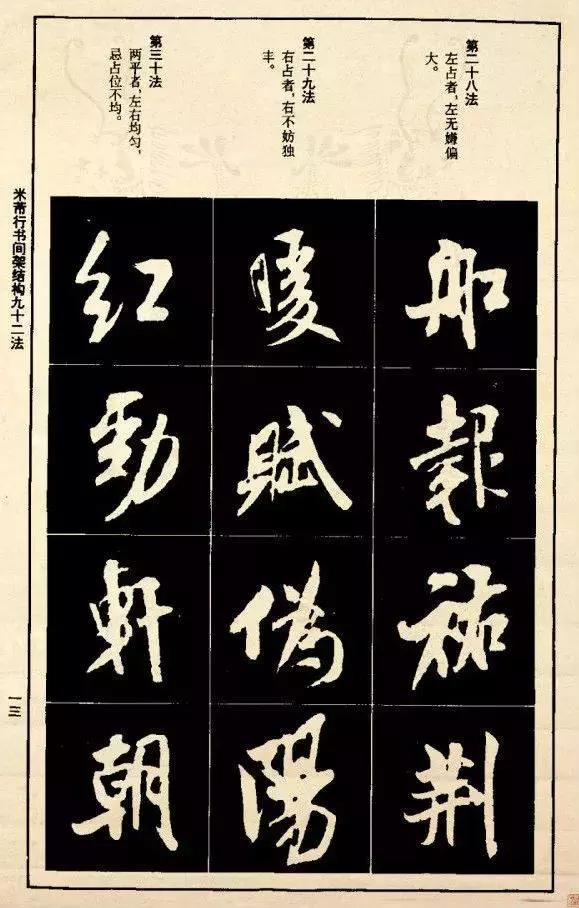 第二十八法
左占者，左无嫌偏
大。
第二十九法
右占者，右不妨独
丰。
第三十法
两平者，左右均匀，
忌占位不均。
報
祐
荆
暖
賦
偽
陽
紅
勁
軒
朝
米芾行书间架结构九十二法
一三